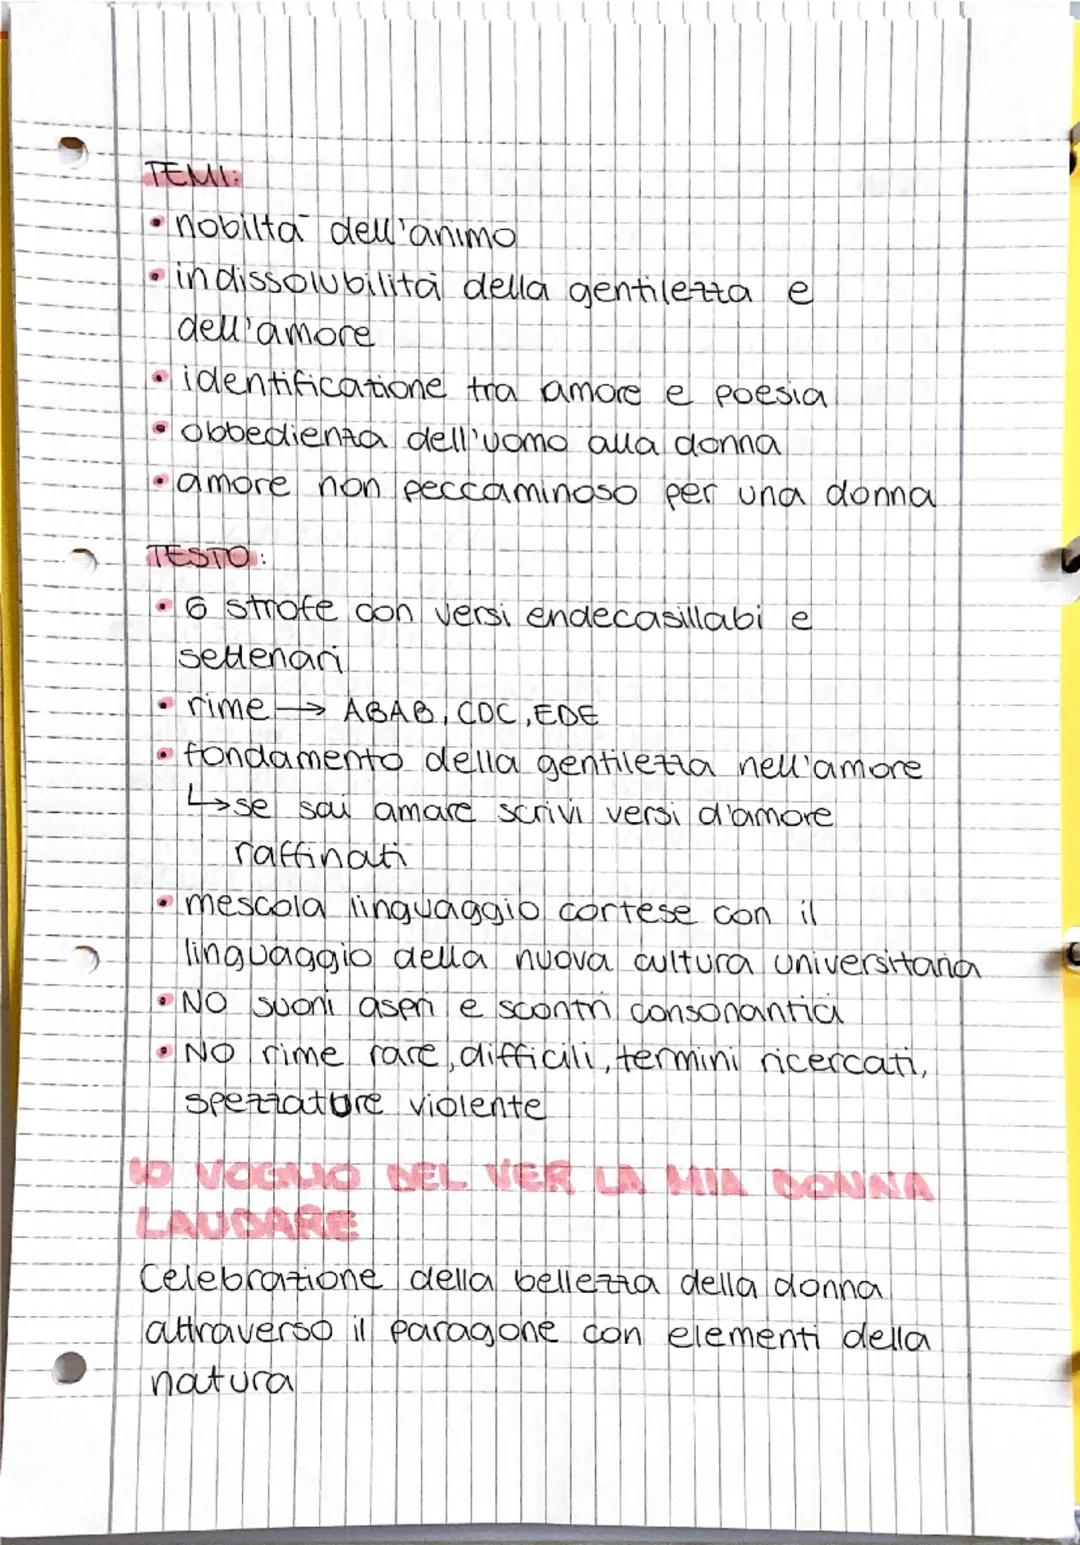 TEMI:
• nobiltà dell'animo
• indissolubilità della gentilezza e
dell'amore
• identificazione tra amore e poesia
• obbedienza dell'uomo alla donna
• amore non peccaminoso per una donna
TESTO:
• 6 strofe con versi endecasillabi e
settenari
• rime → ABAB, CDC, EDE
• fondamento della gentilezza nell'amore
↳ se sai amare scrivi versi d'amore
raffinati
• mescola linguaggio cortese con il
linguaggio della nuova cultura universitaria
• NO suoni aspri e scontri consonantici
• NO rime rare, difficili, termini ricercati,
spezzature violente
IO VOGLIO DEL VER LA MIA DONNA
LAUDARE
Celebrazione della bellezza della donna
attraverso il paragone con elementi della
natura